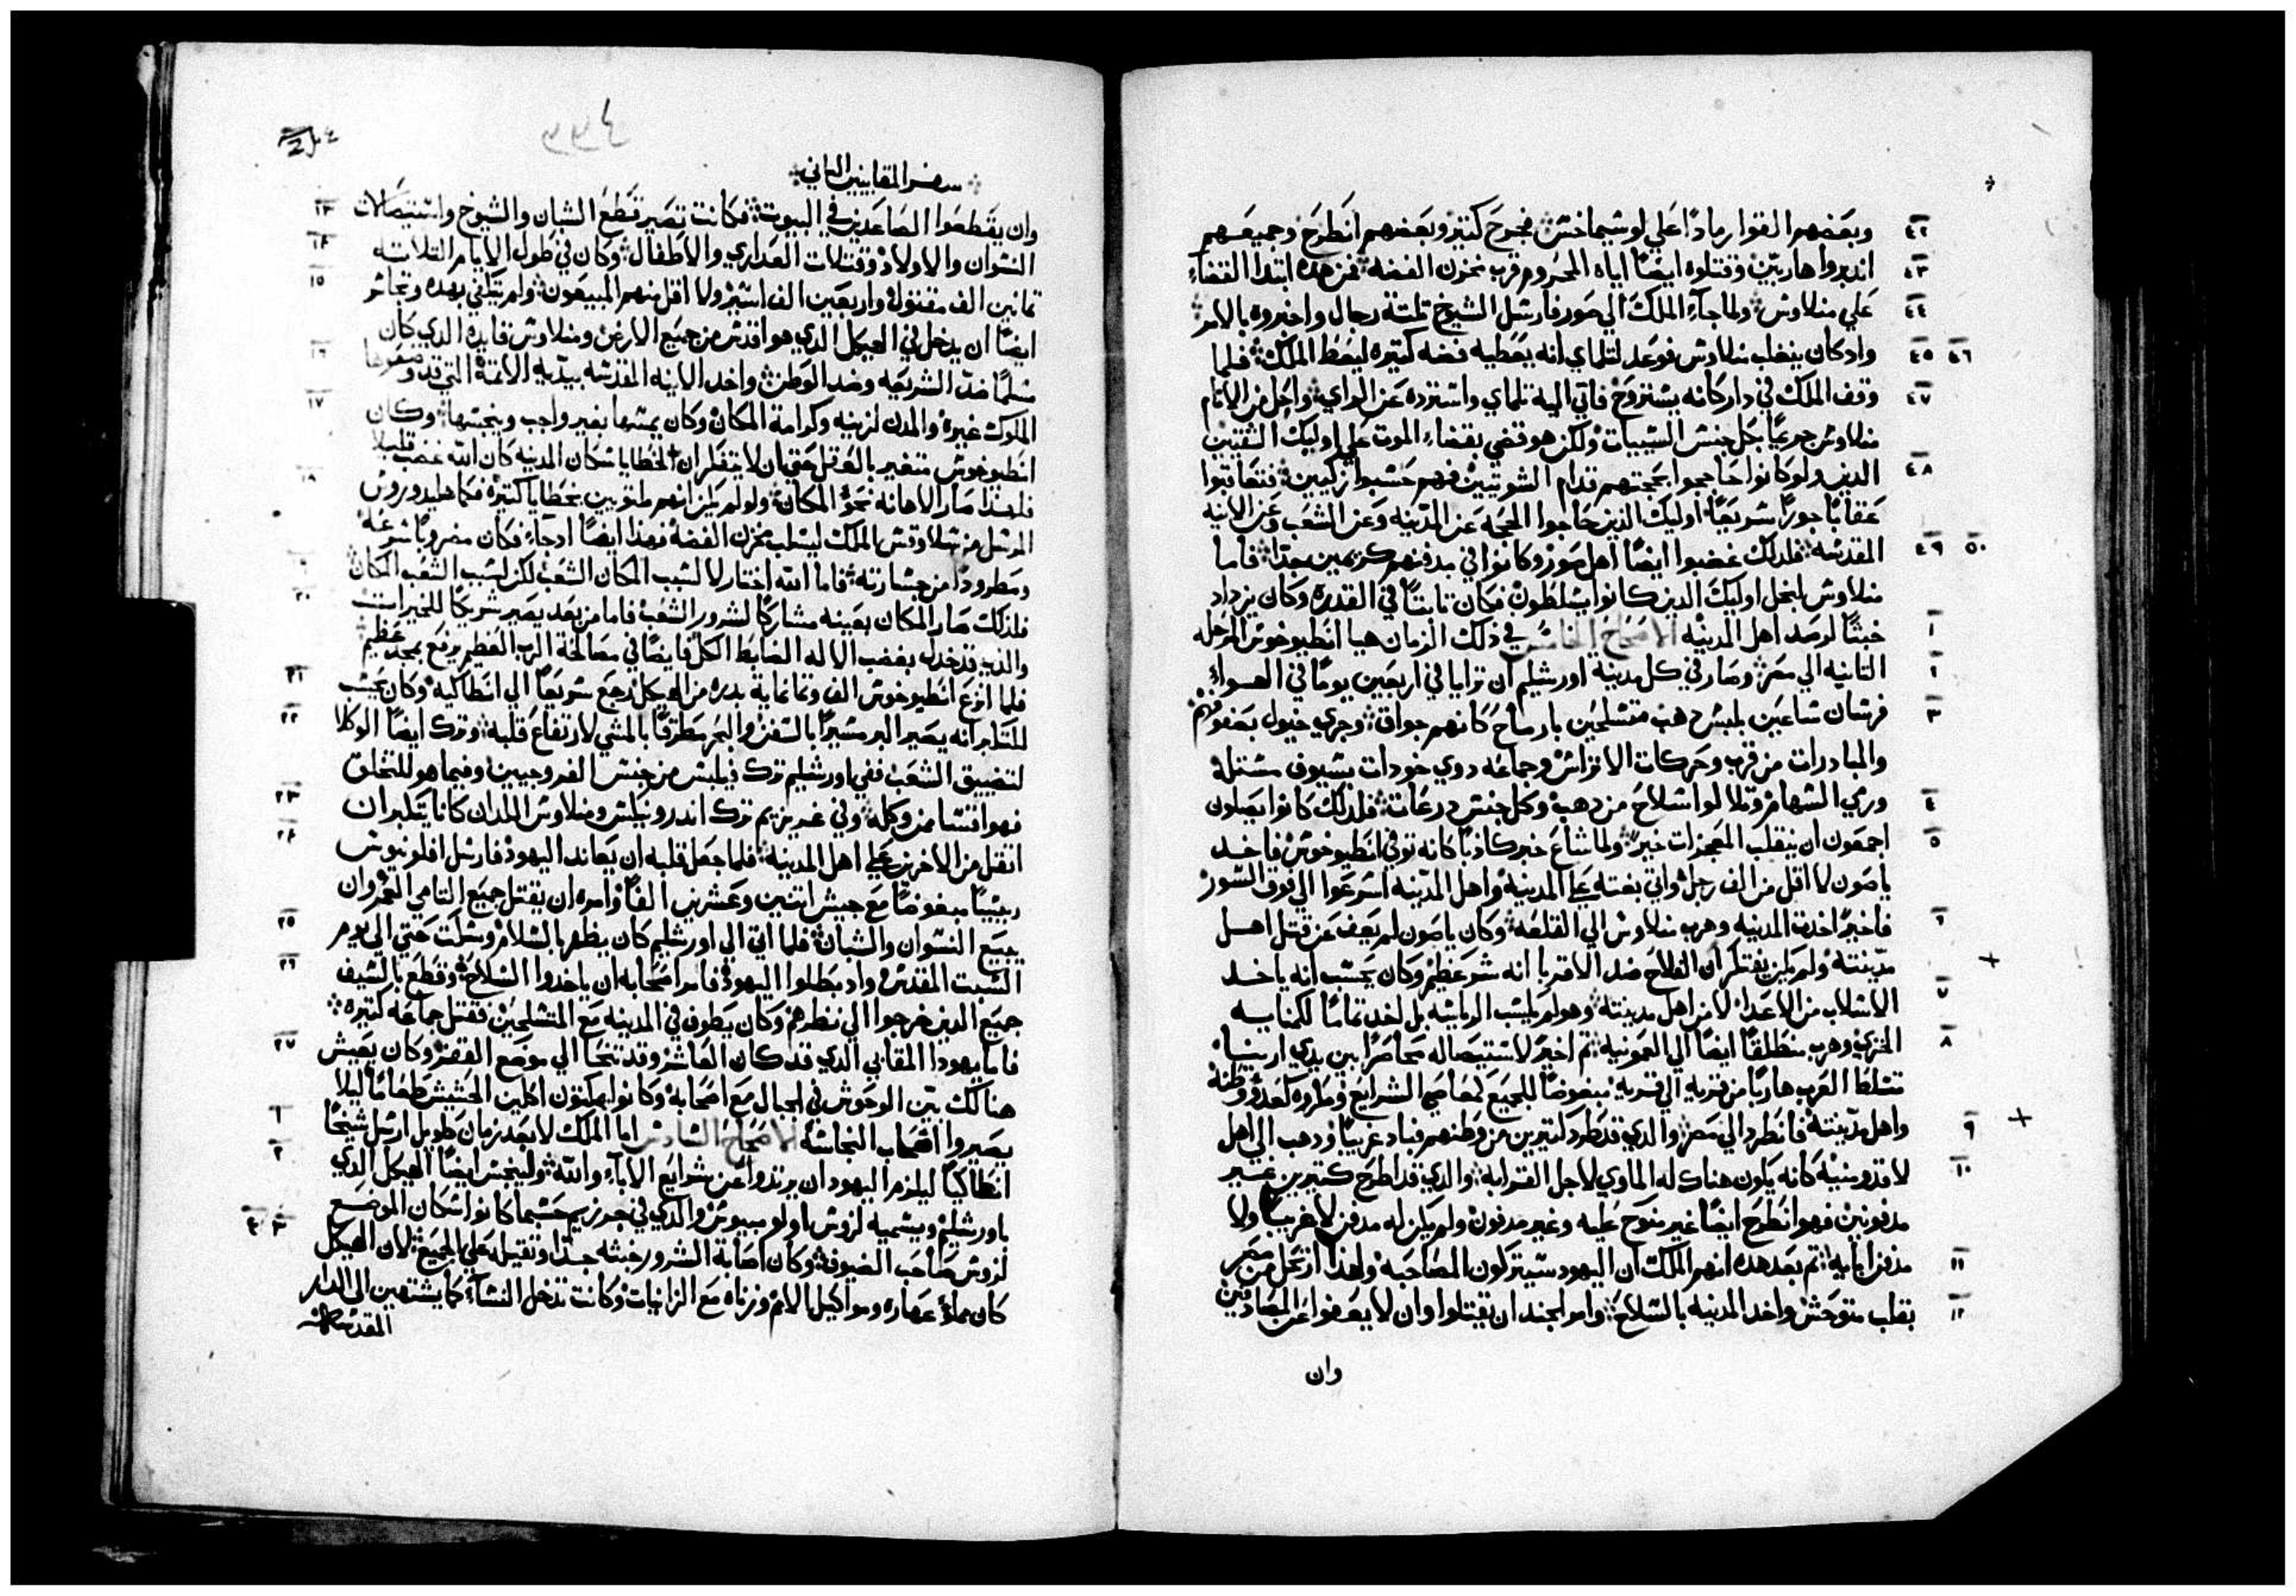 وبعضهم القوا رمادًا علي لوشيماخش فجرح كتير وبعضهم انطرح وجميعهم
٤٢
اندبروا هاربين وقتلوه ايضًا اياه المحروم قرب مخزن الفضه فمن هذه ابتدا القضاء
٤٣
علي منلاوش ولما جاء الملك الي صور فارسل الشيوخ تلتة رجال واخبروه بالامر
٤٤
واد كان ينغلب منلاوش فوعد لتلماي انه يعطيه فضه كتيره ليعظ الملك فلما
٤٥ ٤٦
وقف الملك في دار كانه يستروح فاتي اليه تلماي واسترده عن الراي واحل من الاتام
٤٧
منلاوش جريًا بكل جنس السييات ولكن هو قضي بقضاء الموت علي اوليك الشقيين
الدين ولو كانوا حاججوا بحجتهم قدام الشوتيين فهم حسبوا زكيين فتعاقبوا
٤٨
عقابًا جورًا سريعًا اوليك الذين حاجوا الحجه عن المدينه وعن الشعب وعن الانيه
المقدسه فلدلك غضبوا ايضًا اهل صور وكانوا في مدفنهم كريمين جدًا فاما
٤٩ ٥٠
منلاوش لبخل اوليك الدين كانوا يتسلطون فكان تابتًا في القدره وكان يزداد
خبتًا لرصد اهل المدينه الاصحاح الخامس في دلك الزمان هيا انطيوخوش المرحله
١
التانيه الي مصر وصار في كل مدينة اورشليم ان ترايا في اربعين يومًا في الهواء
٢
فرسان ساعين بلبس دهب متسلحين بارماح كانهم جواق وجري خيول بصفوفهم
٣
والمبادرات من قرب وحركات الاتراس وجماعه دوي خودات بسيوف مستله
ورمي السهام وتلالوا سلاح من دهب وكل جنس درعات فلدلك كانوا يصلون
٤
اجمعون ان ينقلب المعجزات خير ولما شاع خبر كادبًا كانه توفي انطيوخوش فاخد
٥
ياصون لا اقل من الف رجل واتي بغته علي المدينه واهل المدينه اسرعوا الي فوق السور
فاخيرًا اخدت المدينه وهرب منلاوش الي القلعه وكان ياصون لم يعف عن قتل اهل
٦
مدينته ولم يكن يفتكر ان الفلاح ضد الاقربا انه شر عظيم وكان يحسب انه ياخد
الاسلاب من الاعدا لا من اهل مدينته وهو لم يكسب الرياسه بل اخد تمامًا لكمنايه
٧
الخزي وهرب منطلقًا ايضًا الي العمونيه تم اخيرًا لاستيصاله محاصرًا بين يدي اريتا
٨
تسلط العرب هاربًا من قريه الي قريه مبغوضًا للجميع كعاصي الشرايع ومكروه كعدو وطنه
واهل مدينته فانطرد الي مصر والدي قد طرد كتيرين من وطنهم فباد غريبًا ودهب الي اهل
٩
لاقدومنيه كانه يكون هناك له الماوي لاجل القرابه والدي قد اطرح كتيرين غير
١٠
مدفونين فهو انطرح ايضًا غير منوح عليه وغير مدفون ولم يكن له مدفن لا غريبًا ولا
مدفن ابايه تم بعد هده انهم الملك ان اليهود سيتركون المصاحبه ولهدا ارتحل من مصر
١١
بقلب متوحش واخد المدينه بالسلاح وامر الجند ان يقتلوا وان لا يعفوا عن المصادفين
١٢
وان
سفر المقابيين التاني
وان يقطعوا الصاعدين في البيوت فكانت تصير قطع الشبان والشيوخ واستيصالات
١٣
النسوان والاولاد وقتلات العداري والاطفال وكان في طول الايام التلاته
١٤
تمانين الف مقتول واربعين الف اسير ولا اقل منهم المبيعون ولم يكتفي بهده وتجاسر
١٥
ايضًا ان يدخل في الهيكل الدي هو اقدس من جميع الارض ومنلاوش قايده الدي كان
مسلمًا ضد الشريعه وضد الوطن واخد الانيه المقدسه بيديه الاتمه التي قد وضعوها
١٦
الملوك غيره والمدن لزينه وكرامة المكان وكان يمسها بغير واجب وينجسها وكان
١٧
انطيوخوش متغير بالعقل حتي ان لا يتفكر ان لخطايا سكان المدينه كان الله غضب قليلا
فلهدا صار الاهانه نحو المكان ولو لم يكن انهم ملتويين بخطايا كتيره فكما هليودوروش
١٨
المرسل من سلاوقس الملك ليسلب مخزن الفضه فهدا ايضًا ادجاء فكان مضروبًا سرعه
ومطرودًا من جسارته فاما الله اختار لا لسبب المكان الشعب لكن لسبب الشعب المكان
١٩
فلدلك صار المكان بعينه مشاركًا لشرور الشعب فاما من بعد يصير شريكًا للخيرات
٢٠
والدي قد خدل بغضب الاله الضابط الكل فايضًا في مصالحة الرب العظيم يرفع بمجد عظيم
فلما افزع انطيوخوش الف وتمانماية بدره من الهيكل رجع سريعًا الي انطاكيه وكان يحسب
٢١
للتكبر انه يصير البر مسيرًا بالسفن والبحر مطرقًا بالمشي لارتفاع قلبه وترك ايضًا الوكلا
٢٢
لتضييق الشعب ففي اورشليم ترك فيلبس من جنس الفروجيين وفيما هو للتخلق
فهو اقسا ممن وكله وفي غريزيم ترك اندرونيكس ومنلاوش اللدان كانا يتكبران
٢٣
اتقل من الاخرين علي اهل المدينه فلما جعل قلبه ان يعاند اليهود فارسل افلونيوش
٢٤
رييسًا مبغوضًا مع جيش اتنين وعشرين الفًا وامره ان يقتل جميع التامي العمر وان
يبيع النسوان والشبان فلما اتي الي اورشليم كان يظهر بالسلام وسكت حتي الي يوم
٢٥
السبت المقدس واد بطلوا اليهود فامر اصحابه ان ياخدوا السلاح وقطع بالسيف
٢٦
جميع الدين خرجوا الي نظرهم وكان يطوف في المدينه مع المتسلحين فقتل جماعه كتيره
فاما يهودا المقابي الدي قد كان العاشر وقد تنحا الي موضع القفر وكان يعيش
٢٧
هنالك بين الوحوش في الجبال مع اصحابه وكانوا يمكتون اكلين الحشيش طعامًا ليلا
يصيروا اصحاب النجاسه الاصحاح السادس اما الملك لا بعد زمان طويل ارسل شيخًا
١
انطاكيًا ليلزم اليهود ان يرتدوا عن شرايع الاباء والله ولينجس ايضًا الهيكل الدي
٢
باورشليم ويسميه لزوش اولومبيوش والدي في جرزيم حسبما كانوا سكان الموضع
لزوش صاحب الضيوف وكان اصابة الشرور خبته جدًا وتقيله علي الجميع لان الهيكل
٣ ٤
كان مملؤ عهاره ومواكيل الامم وزناه مع الزانيات وكانت تدخل النساء كما يشتهين الي الدار
المقدسه